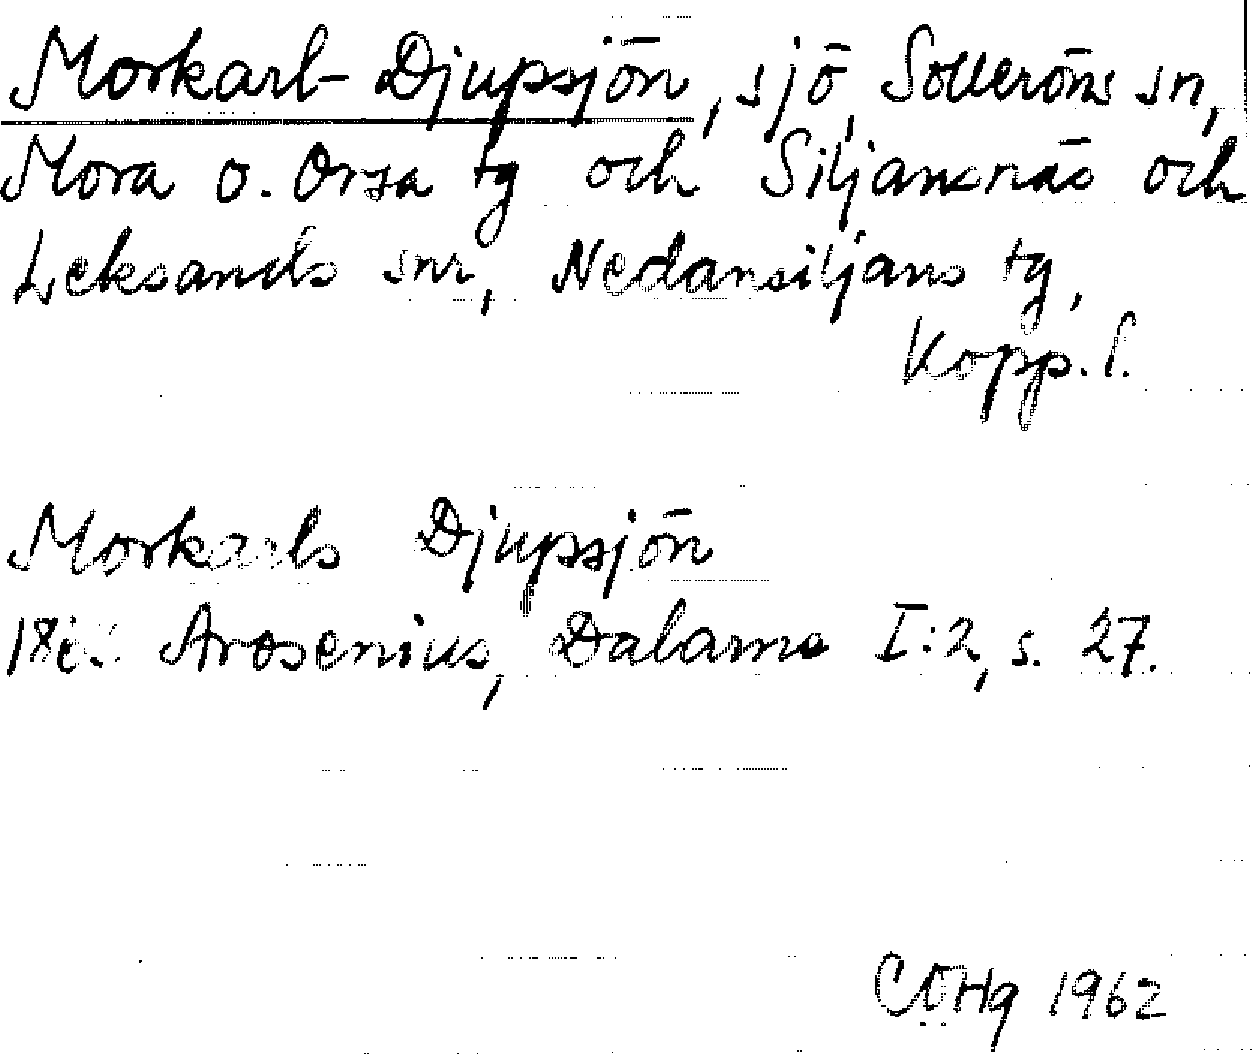 Morkarl-Djupsjön, sjö, Solleröns sn,
Mora o. Orsa tg och Siljansnäs och
Leksands snr, Nedansiljans tg,
Kopp. l.
Morkarls Djupsjön
Arosenius, Dalarne I:2, s. 27.
1962